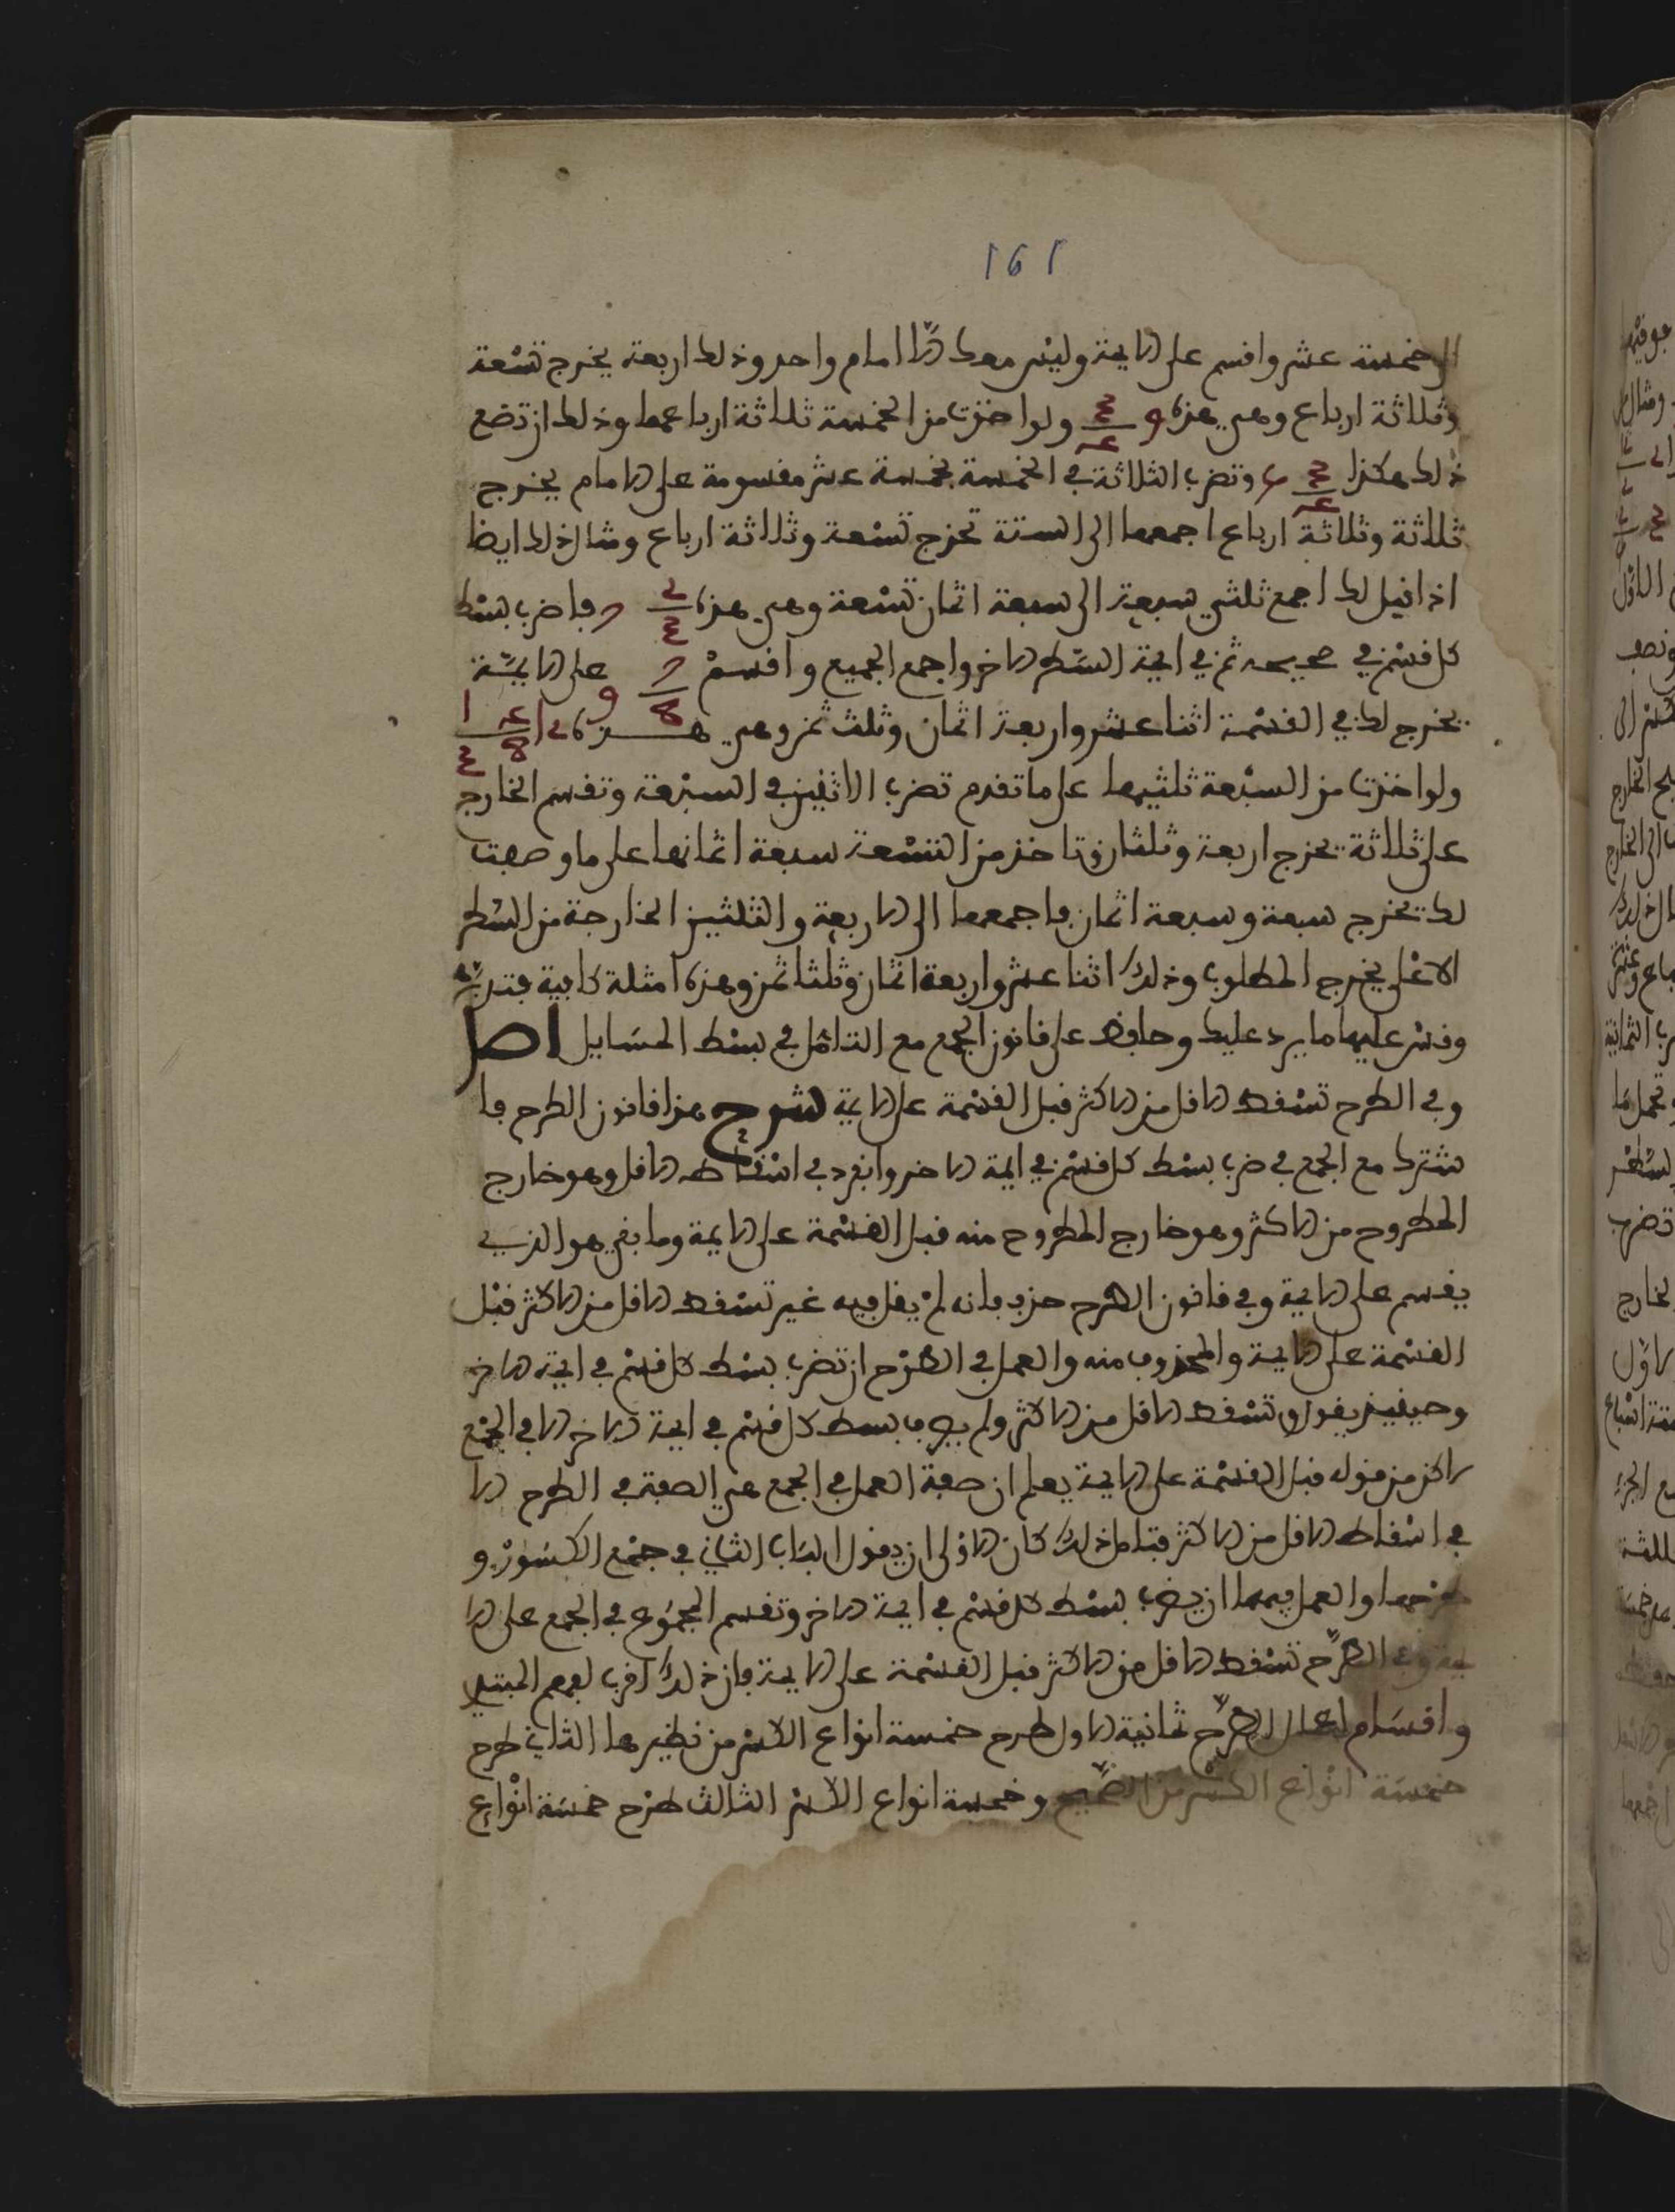 ١٥١
الى خمسة عشر واقسم على الايمة وليس معك الا امام واحد وذلك اربعة يخرج تسعة
وثلاثة ارباع وهي هذه 9 3/4 ولو اخذت من الخمسة ثلاثة ارباعها وذلك ان تضع
ذلك هكذا 3/4 5 وتضرب الثلاثة في الخمسة بخمسة عشر مقسومة على الامام يخرج
ثلاثة وثلاثة ارباع اجمعها الى الستة تخرج تسعة وثلاثة ارباع ومثال ذلك ايضا
اذا قيل لك اجمع ثلثي سبعة الى سبعة اثمان تسعة وهي هذه 2/3 7 فاضرب بسط
كل قسم في صحيحه ثم في ايمة السطر الاخر واجمع الجميع واقسم 7/8 9 على الايمة
يخرج لك في القسمة اثنا عشر واربعة اثمان وثلث ثمن وهي هذه 12 4/8 1/3
ولو اخذت من السبعة ثلثيها على ما تقدم تضرب الاثنين في السبعة وتقسم الخارج
على ثلاثة يخرج اربعة وثلثان وتاخذ من التسعة سبعة اثمانها على ما وصفت
لك يخرج سبعة وسبعة اثمان فاجمعها الى الاربعة والثلثين الخارجة من السطر
الاعلى يخرج المطلوب وذلك اثنا عشر واربعة اثمان وثلثا ثمن وهذه امثلة كافية فتدربه
وقس عليها ما يرد عليك وحافظ على قانون الجمع مع التامل في بسط المسايل اصل
وفي الطرح تسقط الاقل من الاكثر قبل القسمة على الايمة شرح هذا قانون الطرح فا
شترك مع الجمع في ضرب بسط كل قسم في ايمة الاخر وانفرد في اسقاطه الاقل وهو خارج
المطروح من الاكثر وهو خارج المطروح منه قبل القسمة على الايمة وما بقي هو الذي
يقسم على الايمة وفي قانون الطرح حذف فانه لم يقل فيه غير تسقط الاقل من الاكثر قبل
القسمة على الايمة والمحذوف منه والعمل في الطرح ان تضرب بسط كل قسم في ايمة الاخر
وحينئذ يقول تسقط الاقل من الاكثر ولم بسط كل قسم في ايمة الاخر الا في الجمع
لاكن من قوله قبل القسمة على الايمة يعلم ان صفة العمل في الجمع هي الصفة في الطرح الا
في اسقاط الاقل من الاكثر فتامل ذلك كان الاولى ان يقول الباب الثاني في جمع الكسور و
طرحها والعمل فيهما ان يضرب بسط كل قسم في ايمة الاخر وتقسم المجموع في الجمع على الا
يمة وفي الطرح تسقط الاقل من الاكثر قبل القسمة على الايمة فان ذلك اقرب لفهم المبتدي
واقسام اعمال الطرح ثمانية الاول طرح خمسة انواع الكسر من نظيرها الثاني طرح
خمسة انواع الكسر من الصحيح وخمسة انواع الكسر الثالث طرح خمسة انواع